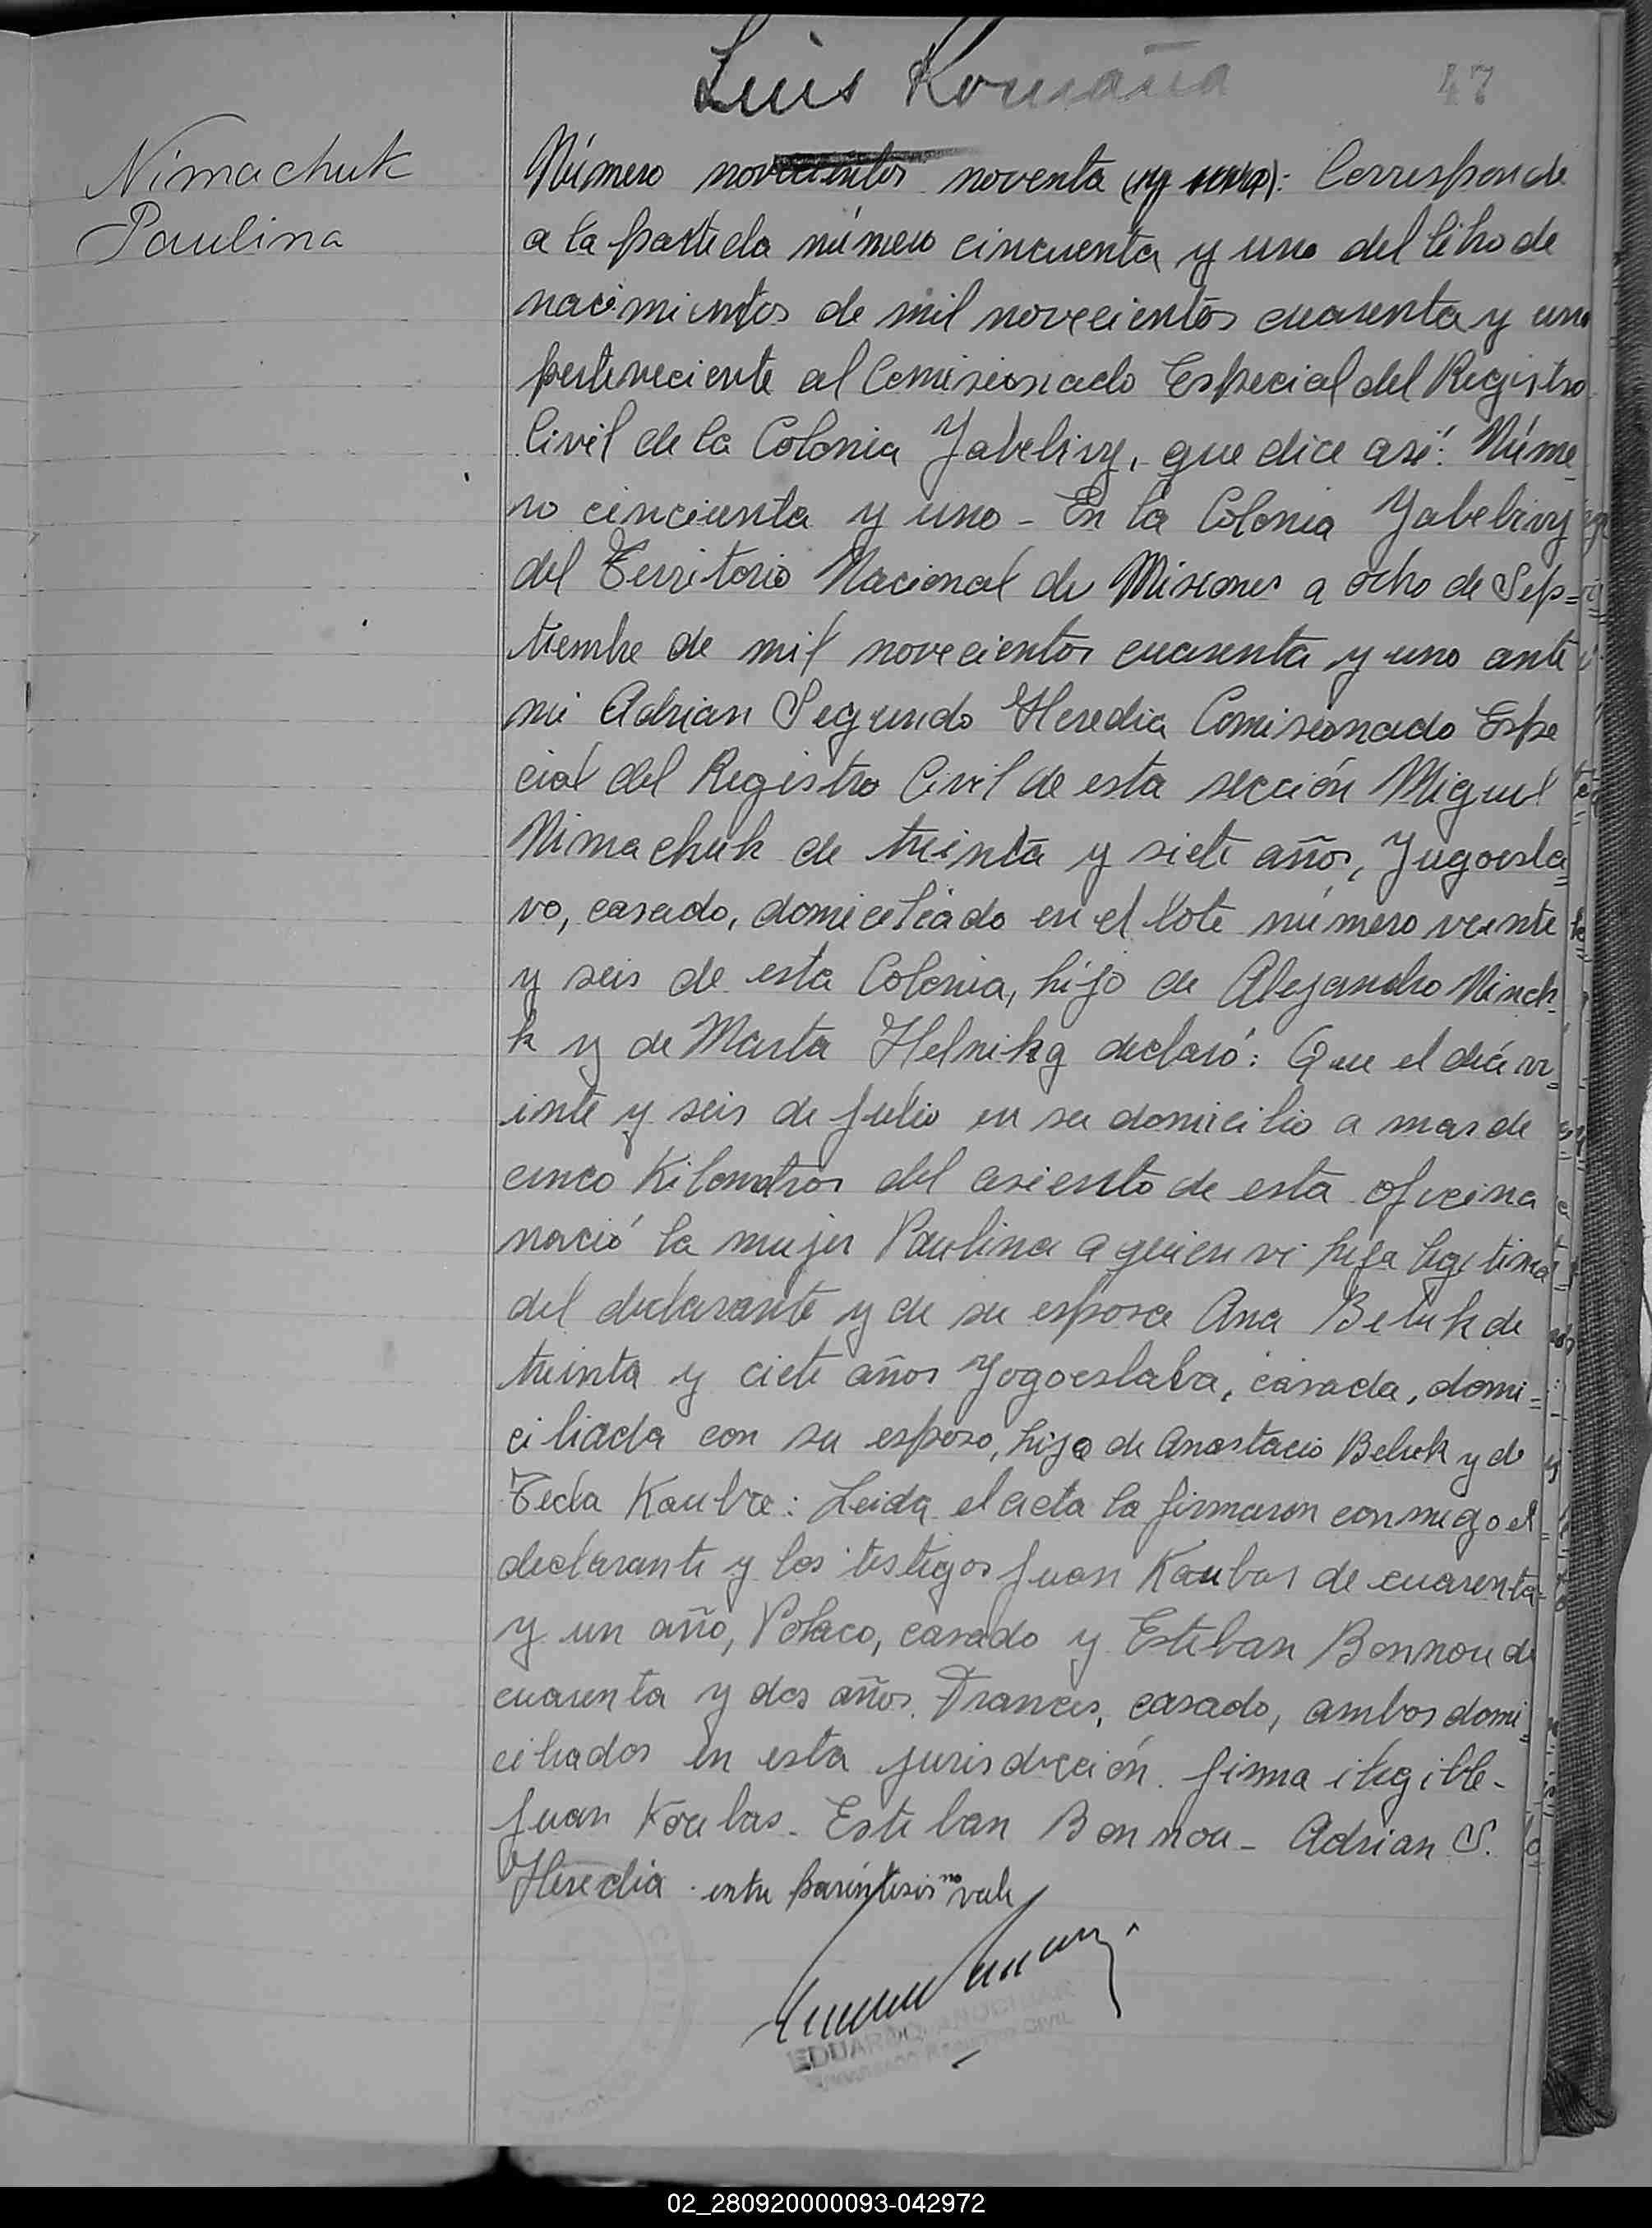 Luis Romaña
47
Nimachuk
Paulina
Número novecientos noventa (y uno): Corresponde
a la partida número cincuenta y uno del libro de
nacimientos de mil novecientos cuarenta y uno
perteneciente al Comisionado Especial del Registro
Civil de la Colonia Yabebiry, que dice así: Núme
ro cincuenta y uno - En la Colonia Yabebiry
del Territorio Nacional de Misiones a ocho de Sep=
tiembre de mil novecientos cuarenta y uno ante
mi Adrian Segundo Heredia Comisionado Espe
cial del Registro Civil de esta sección Miguel
Nimachuk de treinta y siete años, Yugoesla=
vo, casado, domiciliado en el lote número veinte
y seis de esta Colonia, hijo de Alejandro Ninch-
k y de Marta Helnikg declaró: Que el día ve=
inte y seis de julio en su domicilio a mas de
cinco Kilometros del asiento de esta oficina
nació la mujer Paulina a quien vi hija legitima
del declarante y de su esposa Ana Beluk de
treinta y ciete años Yogoeslaba, casada, domi=
ciliada con su esposo, hija de Anastacio Beluk y de
Tecla Kaubre: Leida el acta la firmaron conmigo el
declarante y los testigos Juan Koubas de cuarenta
y un año, Polaco, casado y Esteban Bonnou de
cuarenta y dos años, Frances, casado, ambos domi=
ciliados en esta jurisdicción. firma ilegible-
Juan Koubas - Esteban Bonnou - Adrian S.
Heredia. entre paréntesis no vale
EDUARDO
REGISTRO CIVIL
02_280920000093-042972